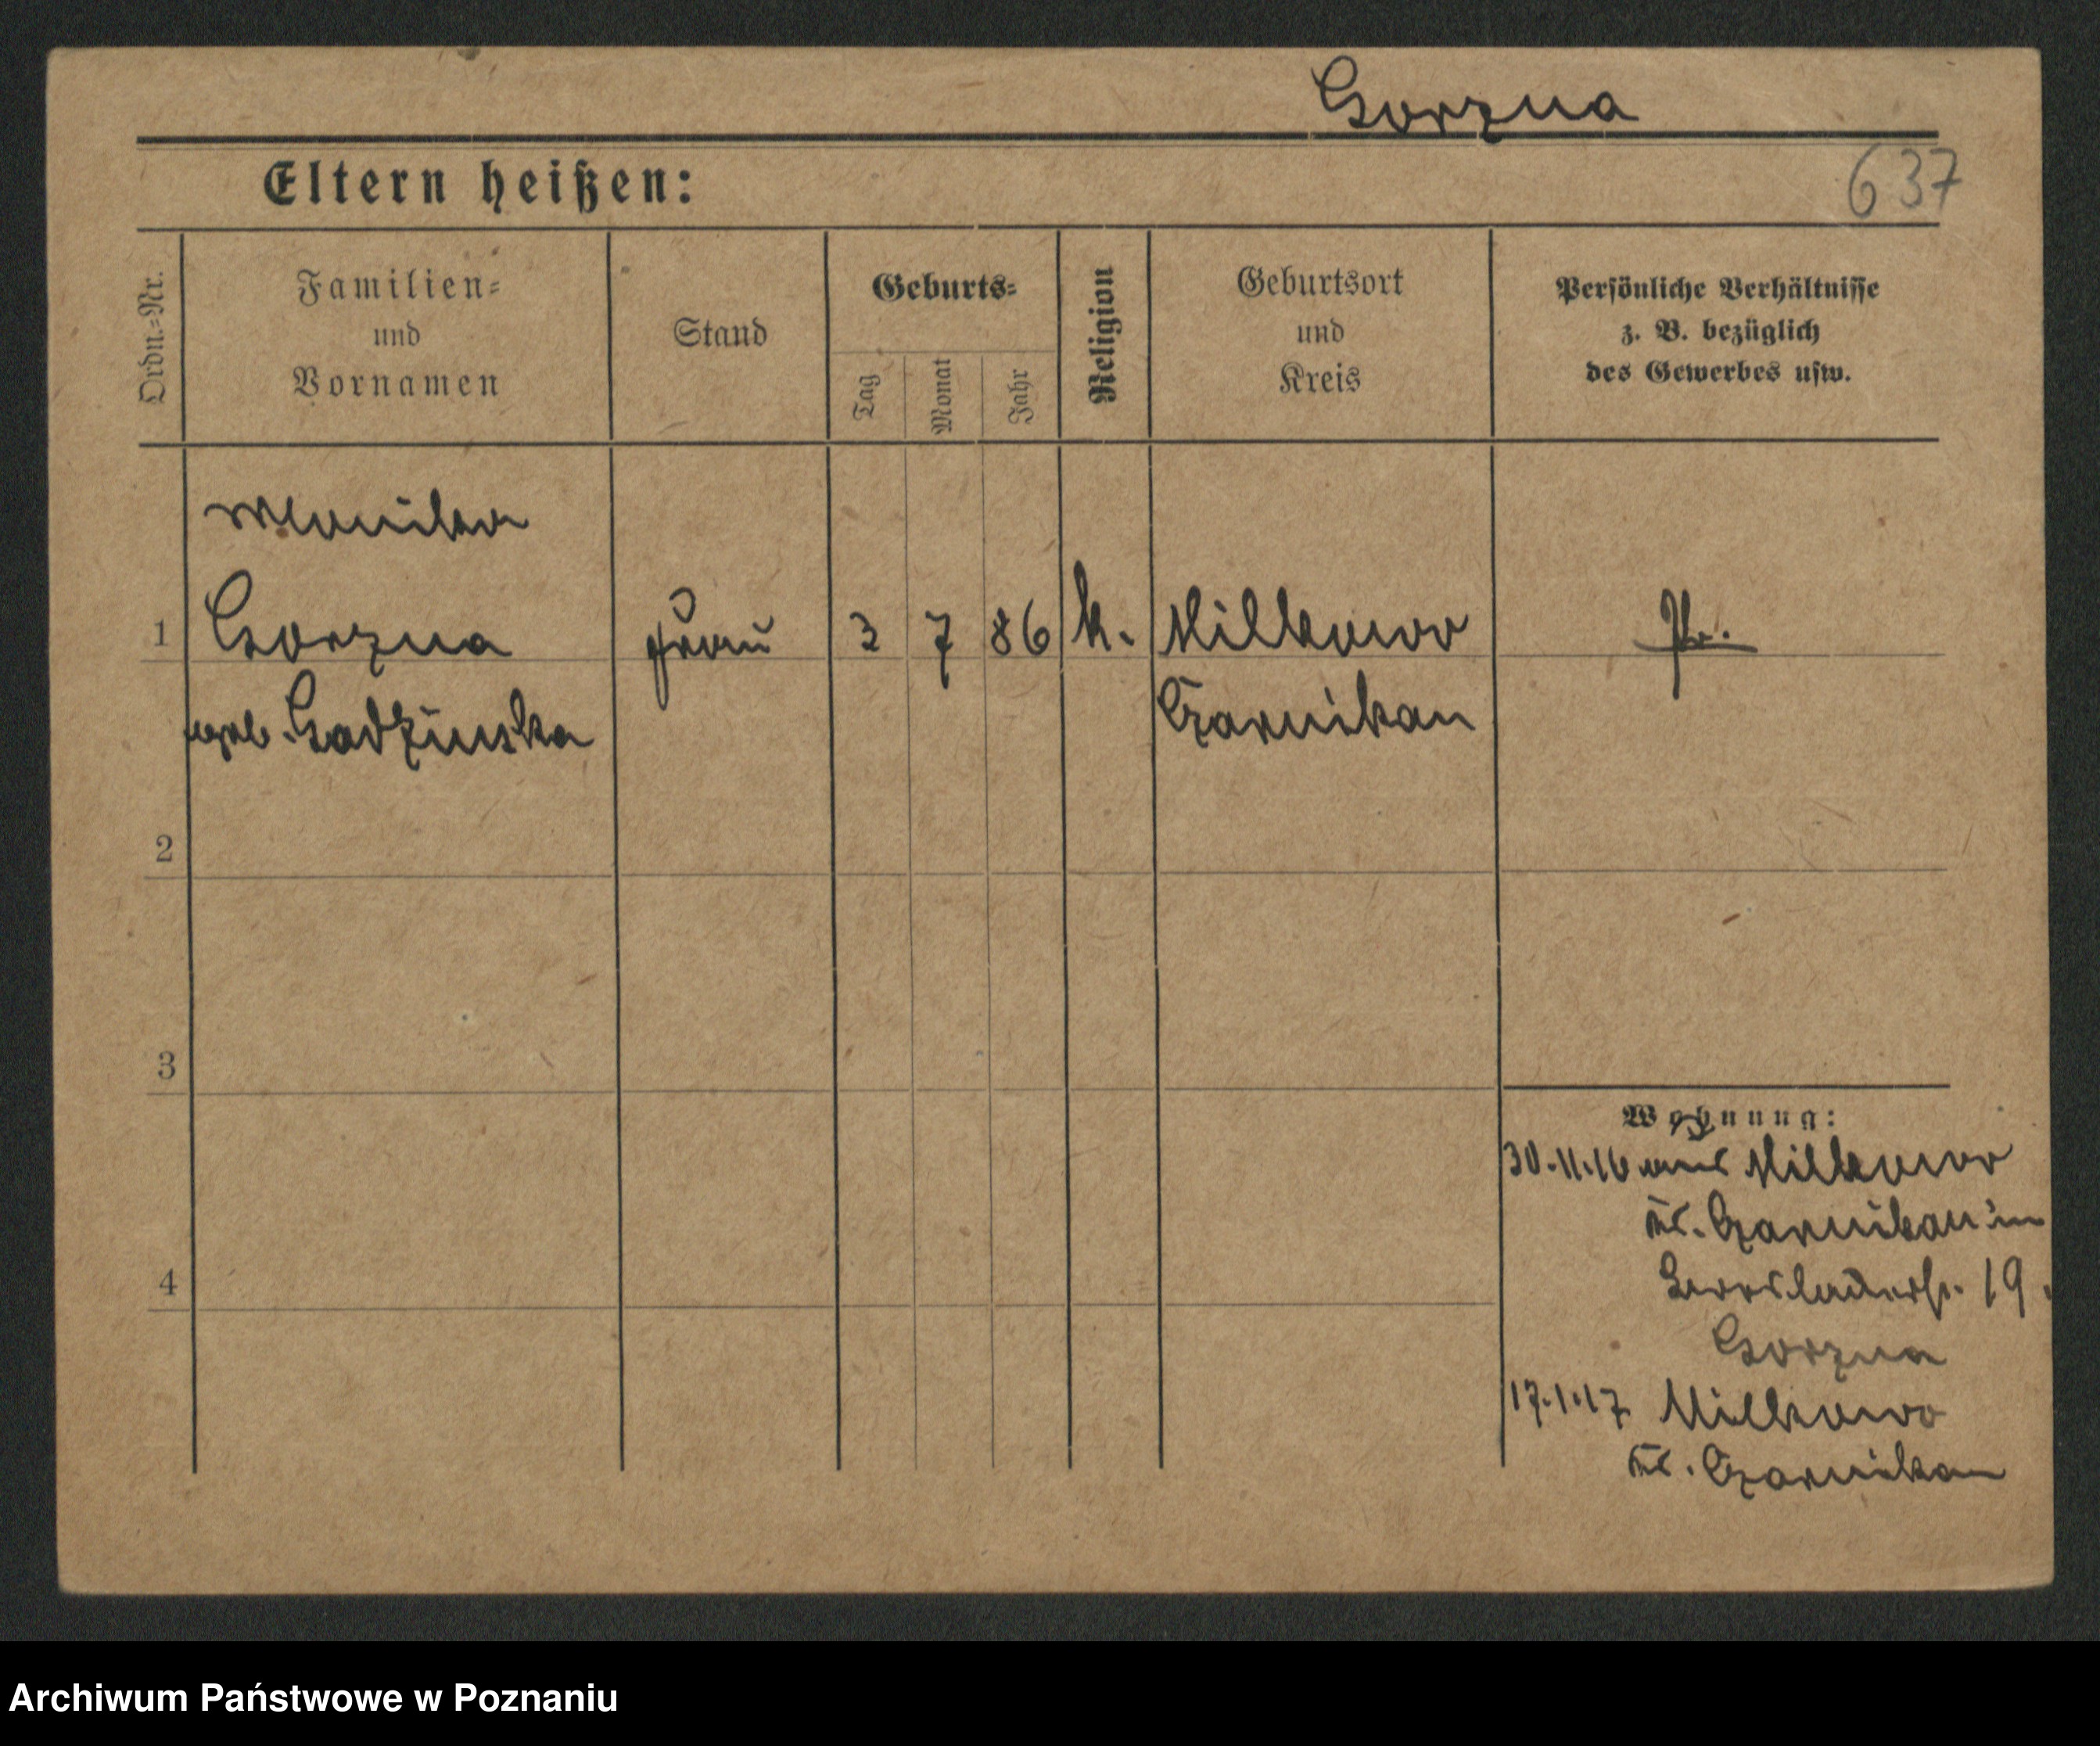 Gorzna
637
Eltern heißen:
Ordn.=Nr.
Familien=
und
Vornamen
Stand
Geburts=
Tag
Monat
Jahr
Religion
Geburtsort
und
Kreis
Persönliche Verhältnisse
z. B. bezüglich
des Gewerbes usw.
Monika
1 Gorzna Frau 3 7 86 k. Milkowo Pr.
geb. Gadzinska Czarnikau
2
3
4
Wohnung:
30.11.16 aus Milkowo
Kr. Czarnikau in
19.
Gorzna
17.1.17 Milkowo
Kr. Czarnikau
Archiwum Państwowe w Poznaniu